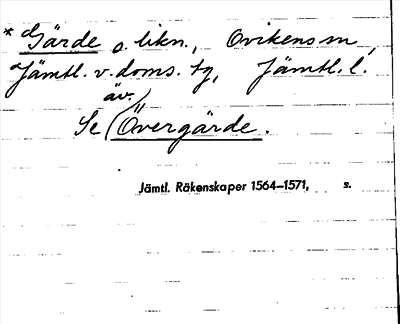 * Gärde o. likn., Ovikens sn,
Jämtl. v. doms. tg, Jämtl. l.
äv.
Se (Övergärde.
Jämtl. Räkenskaper 1564–1571, s.